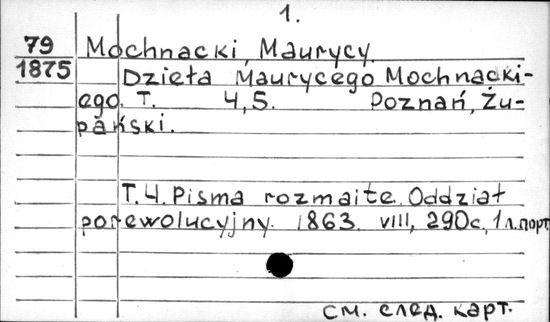 1.
79 Mochnacki, Maurycy.
1875 Dzieła Maurycego Mochnacki-
ego. T. 4,5. Poznań, Żu-
pański.
T.4. Pisma rozmaite. Oddział
porewolucyjny. 1863. VIII, 290c., 1 л.порт.
см. след. карт.